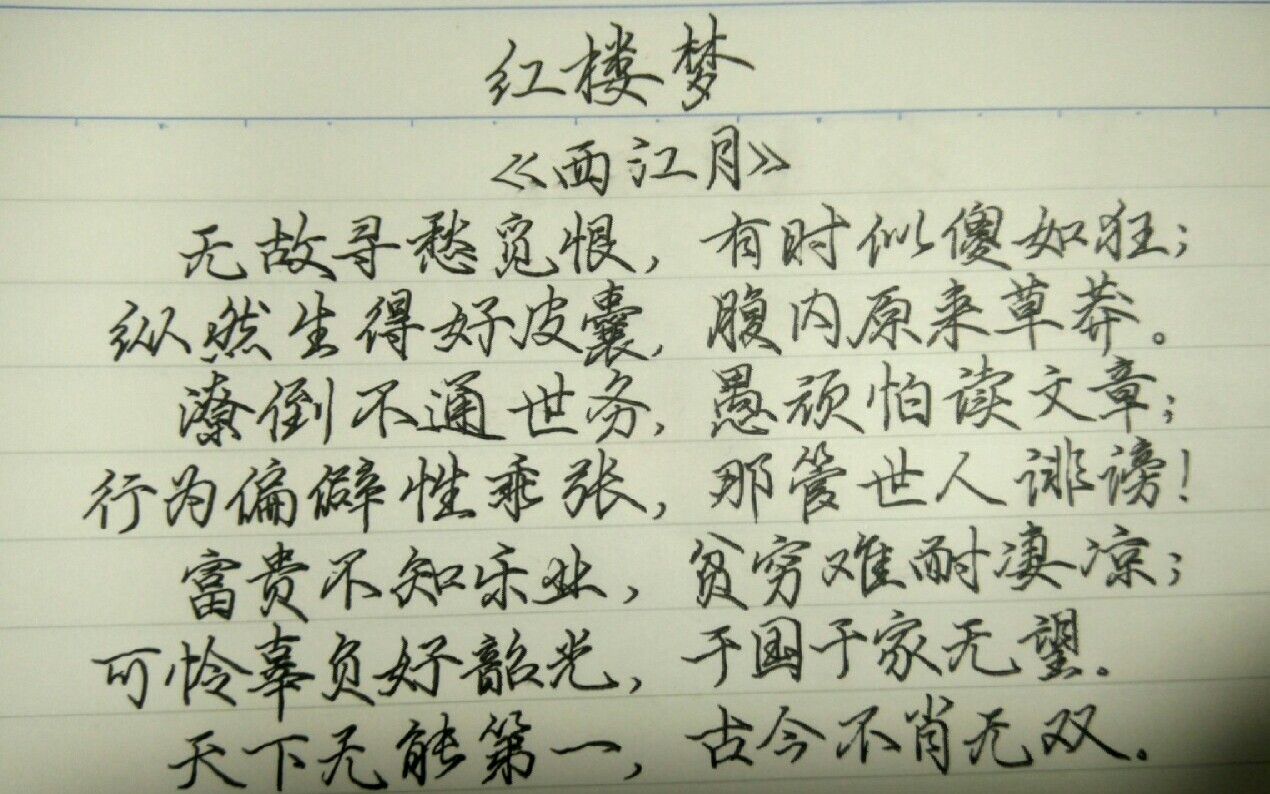 红楼梦
《西江月》
无故寻愁觅恨，有时似傻如狂；
纵然生得好皮囊，腹内原来草莽。
潦倒不通世务，愚顽怕读文章；
行为偏僻性乖张，那管世人诽谤！
富贵不知乐业，贫穷难耐凄凉；
可怜辜负好韶光，于国于家无望。
天下无能第一，古今不肖无双。